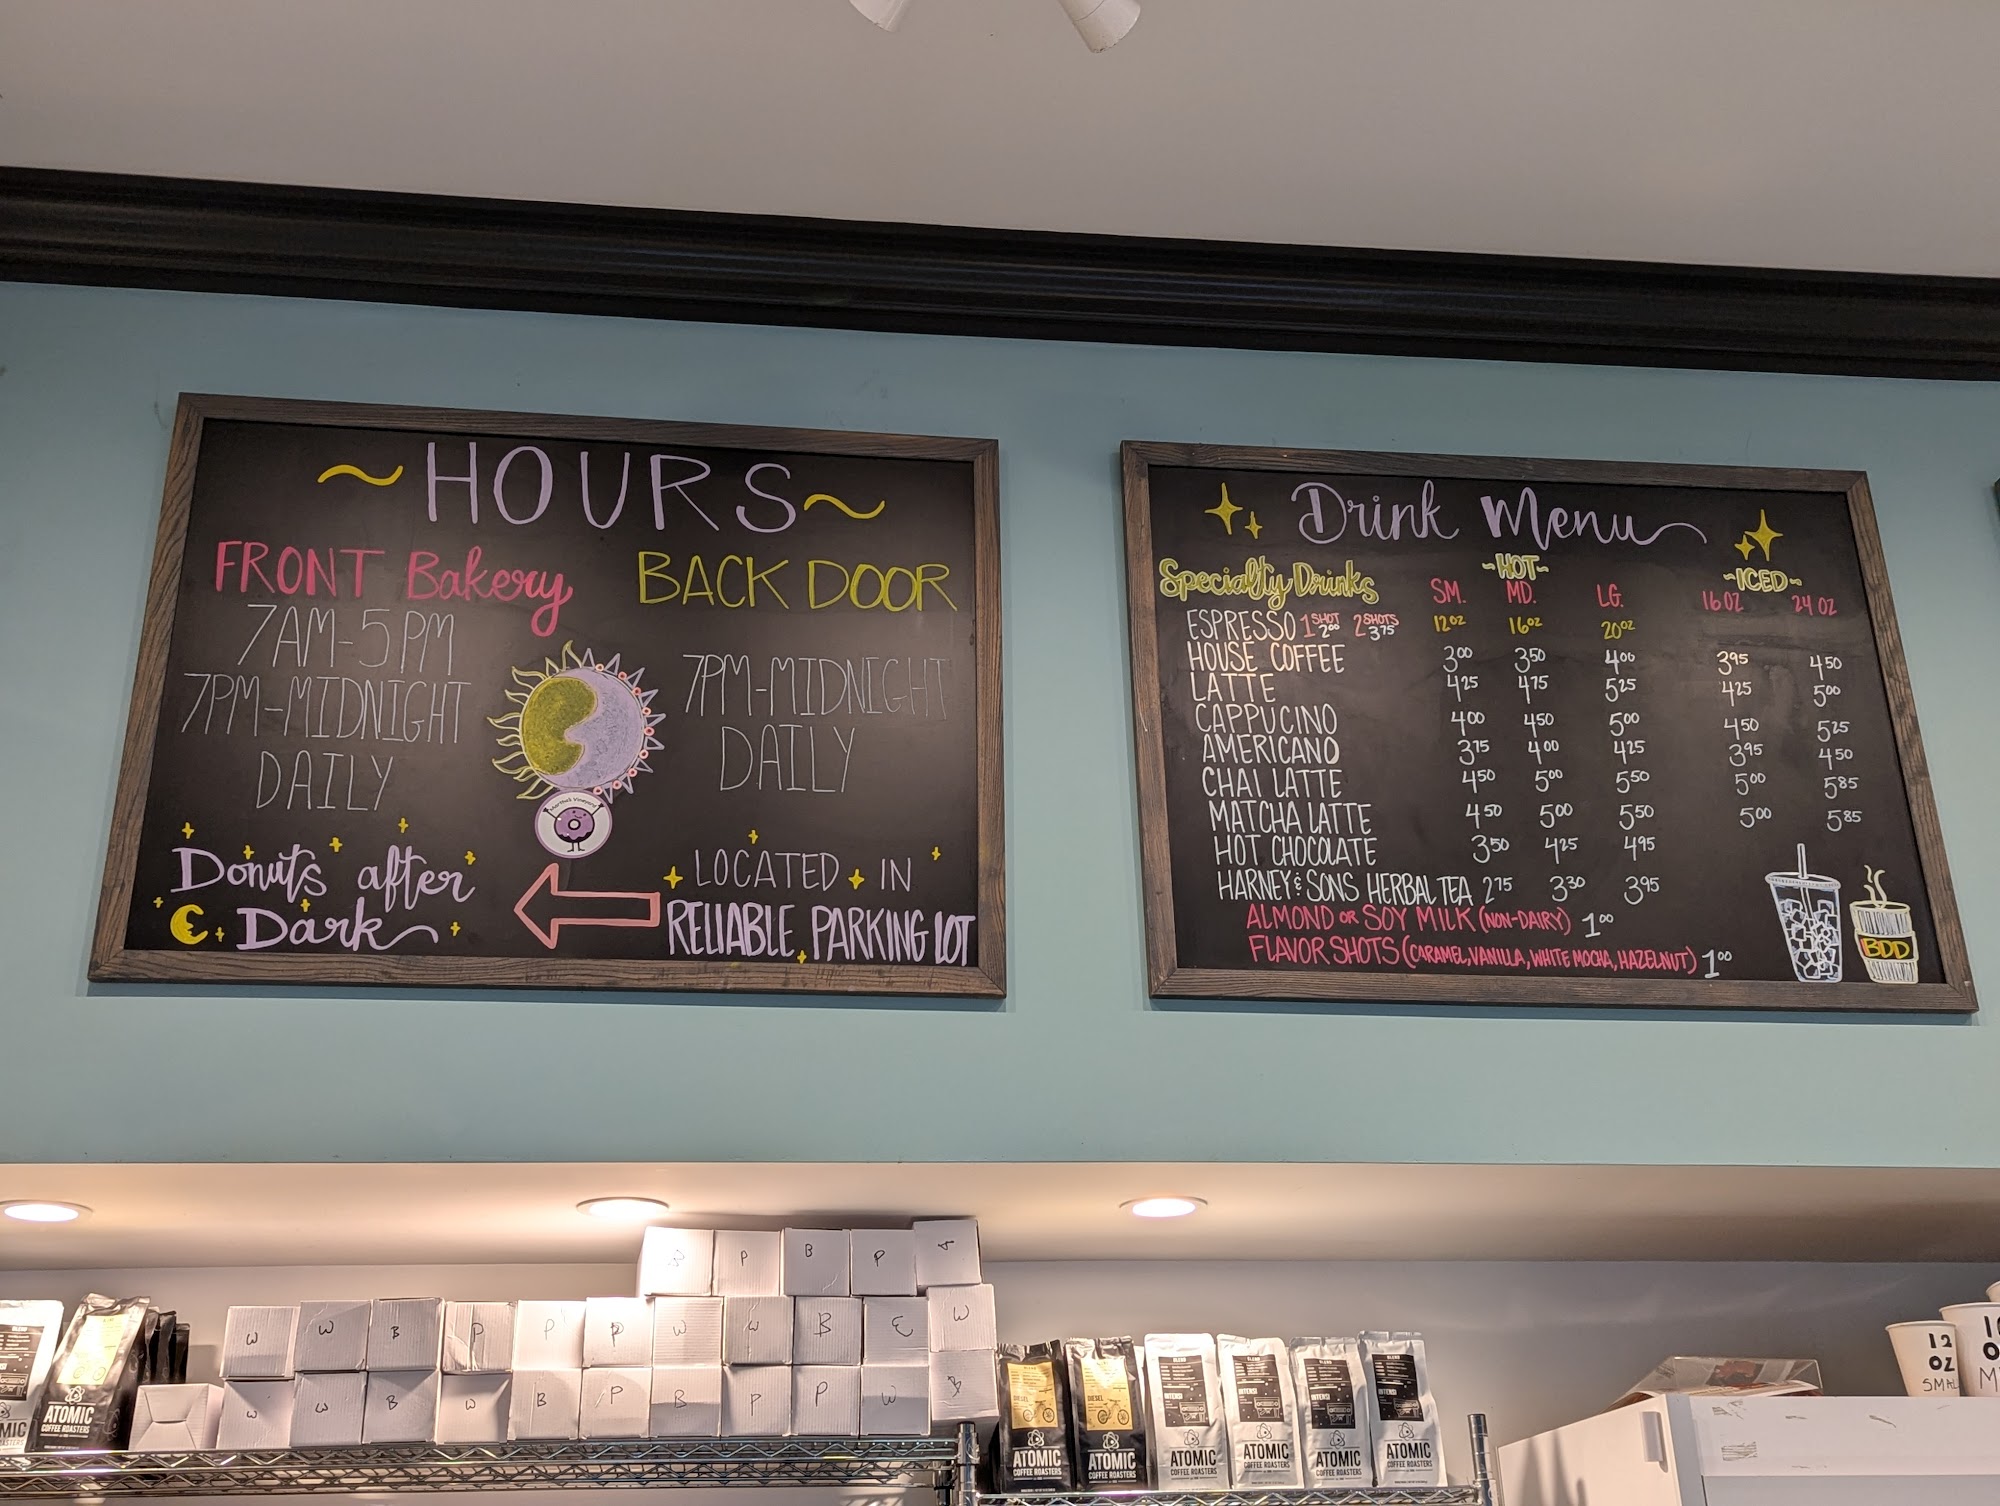 ~HOURS~
FRONT Bakery
7AM-5PM
7PM-MIDNIGHT
DAILY
BACK DOOR
7PM-MIDNIGHT
DAILY
Martha's Vineyard
Donuts after
Dark
LOCATED IN
RELIABLE PARKING LOT
Drink Menu
Specialty Drinks ~HOT~ ~ICED~
SM. MD. LG. 16 OZ 24 OZ
12oz 16oz 20oz
ESPRESSO 1 SHOT 2.00 2 SHOTS 3.75
HOUSE COFFEE 3.00 3.50 4.00 3.95 4.50
LATTE 4.25 4.75 5.25 4.25 5.00
CAPPUCINO 4.00 4.50 5.00 4.50 5.25
AMERICANO 3.75 4.00 4.25 3.95 4.50
CHAI LATTE 4.50 5.00 5.50 5.00 5.85
MATCHA LATTE 4.50 5.00 5.50 5.00 5.85
HOT CHOCOLATE 3.50 4.25 4.95
HARNEY & SONS HERBAL TEA 2.75 3.30 3.95
ALMOND OR SOY MILK (NON-DAIRY) 1.00
FLAVOR SHOTS (CARAMEL, VANILLA, WHITE MOCHA, HAZELNUT) 1.00
BDD
P B P
W W B P P P W W B E W
W W B W B P B P P W B
ATOMIC
COFFEE ROASTERS
DIESEL
ATOMIC
COFFEE ROASTERS
DIESEL
ATOMIC
COFFEE ROASTERS
BLEND
INTENSI
ATOMIC
COFFEE ROASTERS
BLEND
INTENSI
ATOMIC
COFFEE ROASTERS
BLEND
INTENSI
ATOMIC
COFFEE ROASTERS
BLEND
INTENSI
ATOMIC
COFFEE ROASTERS
12
OZ